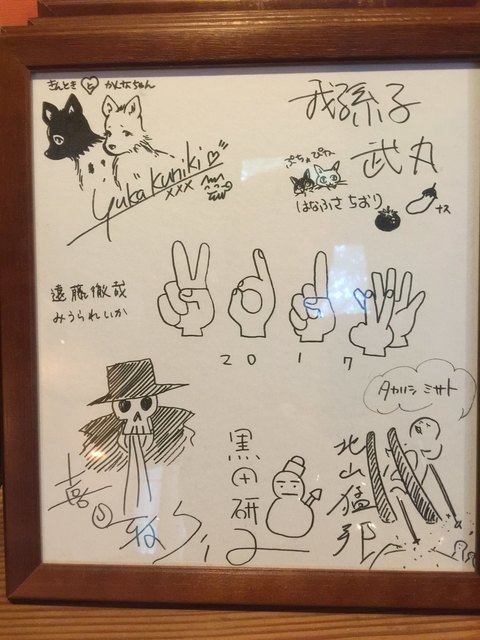 きんときとかんなちゃん
我孫子
武丸
Yuka Kuniki
xxx
ぷちょぴゃん
はなふさ ちおり
ナス
遠藤徹哉
みうられいか
2017
タカハシ ミサト
黒田研二
北山猛邦